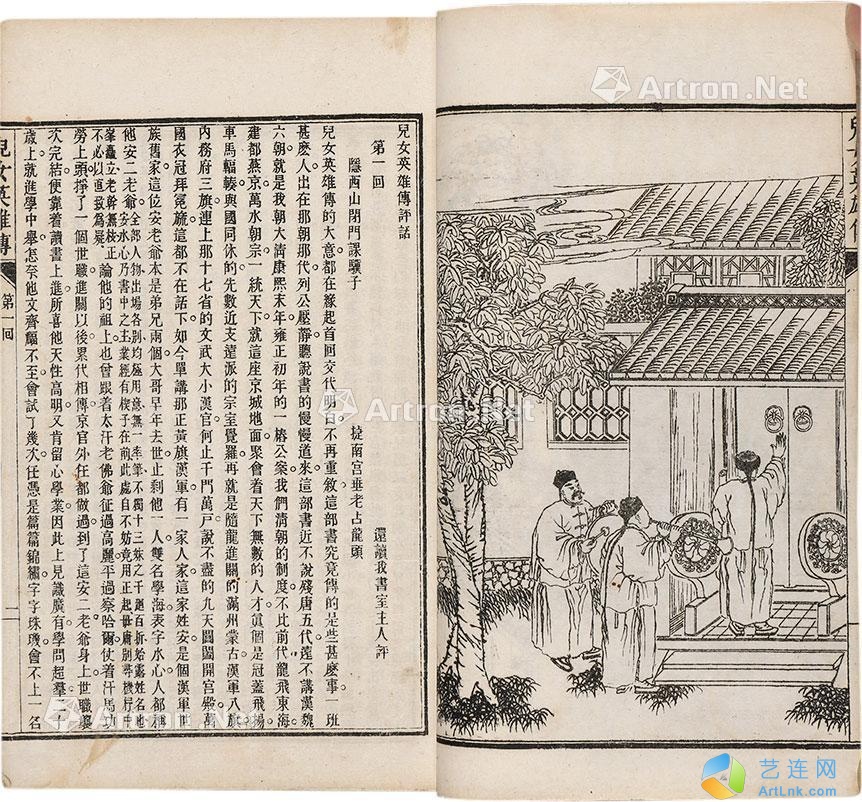 兒女英雄傳評話
第一回
隱西山閉門課驥子 捷南宮垂老占龍頭
還讀我書室主人評
兒女英雄傳的大意都在緣起首回交代明白不再重敘這部書究竟傳的是些甚麽事一班
甚麽人出在那朝那代列公壓靜聽說書的慢慢道來這部書近不說殘唐五代遠不講漢魏
六朝就是我朝大清康熙末年雍正初年的一樁公案我們清朝的制度不比前代龍飛東海
建都燕京萬水朝宗一統天下就這座京城地面聚會着天下無數的人才眞個是冠蓋飛揚
車馬輻輳與國同休的先數近支遠派的宗室覺羅再就是隨龍進關的滿州蒙古漢軍八旗
內務府三旗連上那十七省的文武大小漢官何止千門萬戶說不盡的九天閶闔開宮殿萬
國衣冠拜冕旒這都不在話下如今單講那正黃旗漢軍有一家人家這家姓安是個漢軍世
族舊家這位安老爺本是弟兄兩個大哥早年去世止剩他一人雙名學海表字水心人都稱
他安二老爺
論他的祖上也曾跟着太汗老佛爺征過高麗平過察哈爾仗着汗馬功
勞上頭掙了一個世職進關以後累代相傳京官外任都做過到了這安二老爺身上世職襲
次完結便靠着讀書上進所喜他天性高明又肯留心學業因此上見識廣有學問超羣二十
歲上就進學中舉怎奈他文齊福不至會試了幾次任憑是篇篇錦繡字字珠璣會不上一名
兒女英雄傳
第一回
一
Artron.Net
Artron.Net
Artron.Net
艺连网
ArtLnk.com